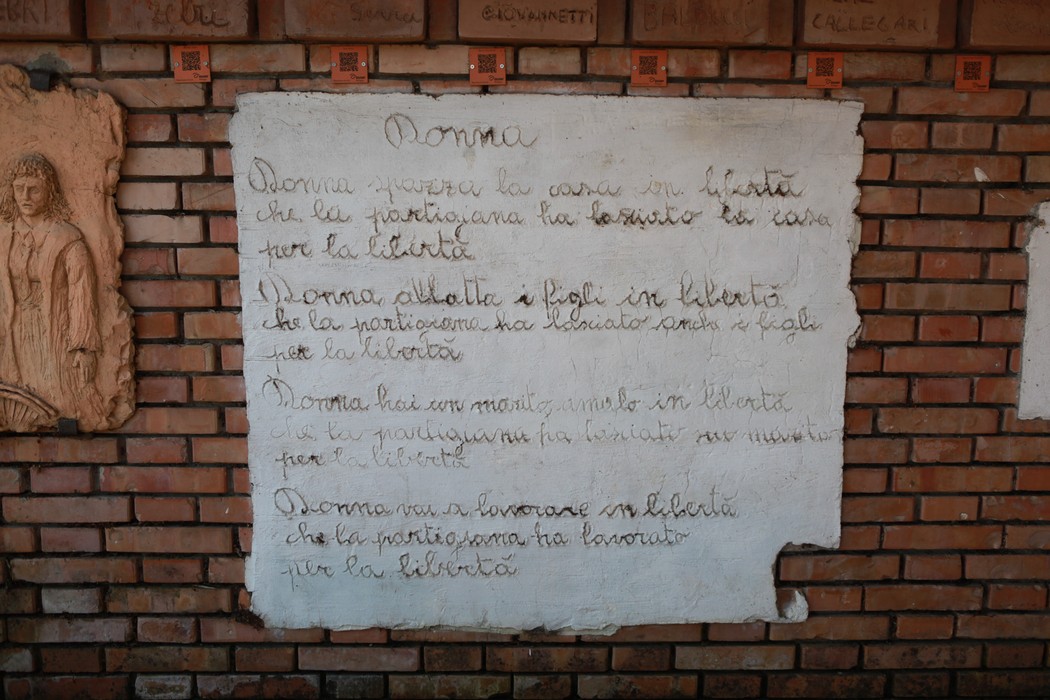 GIOVANNETTI
CALLEGARI
Donna
Donna spazza la casa in libertà
che la partigiana ha lasciato la casa
per la libertà
Donna allatta i figli in libertà
che la partigiana ha lasciato anche i figli
per la libertà
Donna hai un marito amalo in libertà
che la partigiana ha lasciato suo marito
per la libertà
Donna vai a lavorare in libertà
che la partigiana ha lavorato
per la libertà